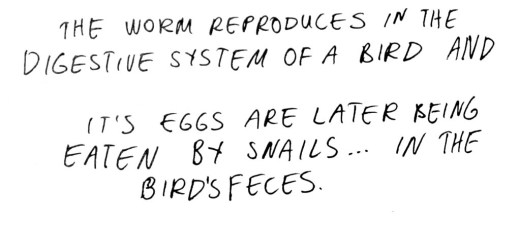 THE WORM REPRODUCES IN THE
DIGESTIVE SYSTEM OF A BIRD AND
IT'S EGGS ARE LATER BEING
EATEN BY SNAILS... IN THE
BIRD'S FECES.